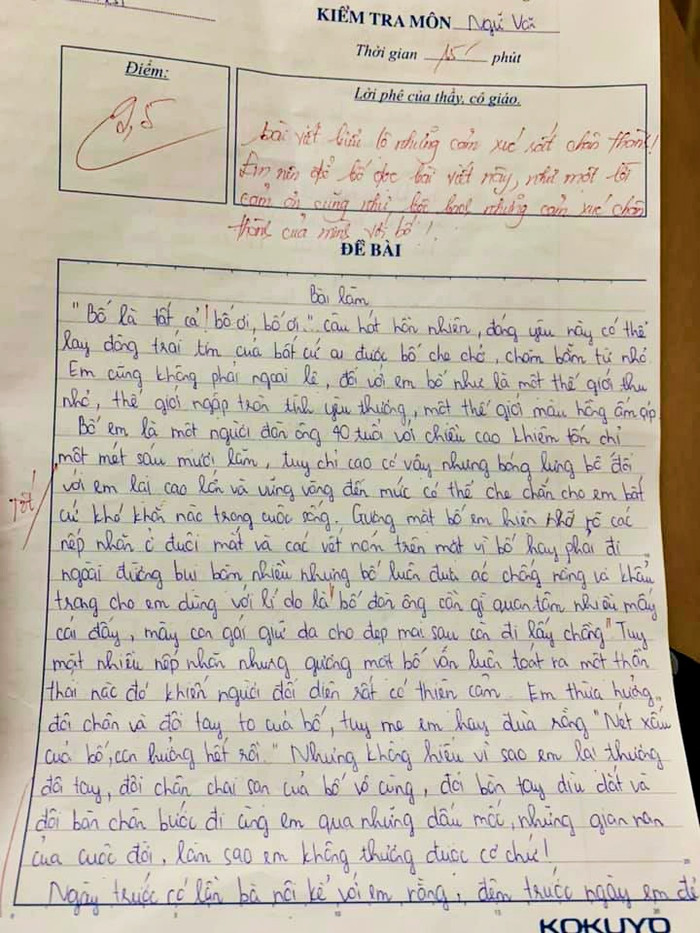 KIỂM TRA MÔN Ngữ Văn
Thời gian 15' phút
Điểm:
9,5
Lời phê của thầy, cô giáo.
bài viết biểu lộ những cảm xúc rất chân thành!
Em nên để bố đọc bài viết này, như một lời
cảm ơn cũng như bộc bạch những cảm xúc chân
thành của mình với bố!
ĐỀ BÀI
Bài làm
"Bố là tất cả! bố ơi, bố ơi." câu hát hồn nhiên, đáng yêu này có thể
lay động trái tim của bất cứ ai được bố che chở, chăm bẵm từ nhỏ.
Em cũng không phải ngoại lệ, đối với em bố như là một thế giới thu
nhỏ, thế giới ngập tràn tình yêu thương, một thế giới màu hồng ấm áp.
Bố em là một người đàn ông 40 tuổi với chiều cao khiêm tốn chỉ
một mét sáu mươi lăm, tuy chỉ cao có vậy nhưng bóng lưng bố đối
với em lại cao lớn và vững vàng đến mức có thể che chắn cho em bất
Tốt!
cứ khó khăn nào trong cuộc sống. Gương mặt bố em hiện rõ các
nếp nhăn ở đuôi mắt và các vết nám trên mặt vì bố hay phải đi
ngoài đường bụi bặm nhiều nhưng bố luôn đưa áo chống nắng và khẩu
trang cho em dùng với lí do là "bố đàn ông cần gì quan tâm nhiều mấy
cái đấy, mày con gái giữ da cho đẹp mai sau còn đi lấy chồng" Tuy
mặt nhiều nếp nhăn nhưng gương mặt bố vẫn luôn toát ra một thần
thái nào đó khiến người đối diện rất có thiện cảm. Em thừa hưởng
đôi chân và đôi tay to của bố, tuy mẹ em hay đùa rằng "Nét xấu
của bố, con hưởng hết rồi." Nhưng không hiểu vì sao em lại thương
đôi tay, đôi chân chai sạn của bố vô cùng, đôi bàn tay dìu dắt và
đôi bàn chân bước đi cùng em qua những dấu mốc, những gian nan
của cuộc đời, làm sao em không thương được cơ chứ!
Ngày trước có lần bà nội kể với em rằng, đêm trước ngày em đẻ
KOKUYO